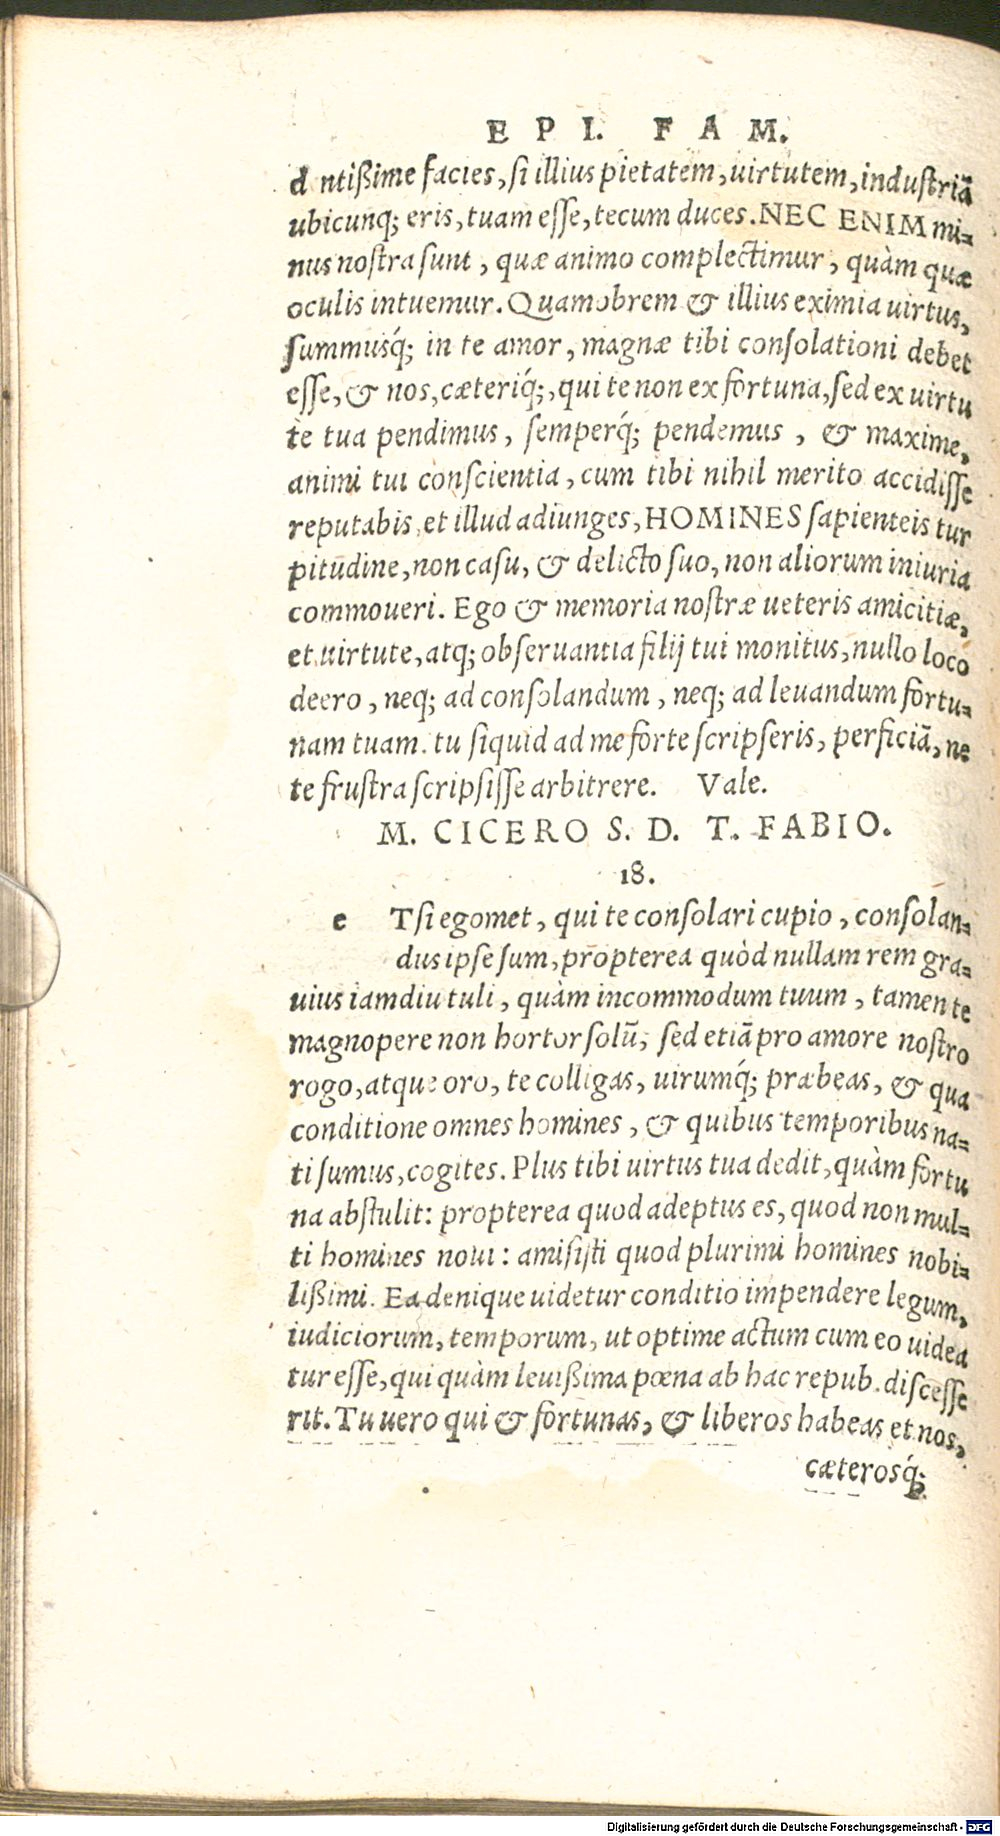 EPI. FAM.
d ntißime facies, si illius pietatem, uirtutem, industriã
ubicunq; eris, tuam esse, tecum duces. NEC ENIM mi-
nus nostra sunt, quæ animo complectimur, quàm quæ
oculis intuemur. Quamobrem & illius eximia uirtus,
summusq́; in te amor, magnæ tibi consolationi debet
esse, & nos, cæteriq́;, qui te non ex fortuna, sed ex uirtu
te tua pendimus, semperq́; pendemus, & maxime,
animi tui conscientia, cum tibi nihil merito accidisse
reputabis, et illud adiunges, HOMINES sapienteis tur
pitudine, non casu, & delicto suo, non aliorum iniuria
commoueri. Ego & memoria nostræ ueteris amicitiæ,
et uirtute, atq; obseruantia filij tui monitus, nullo loco
deero, neq; ad consolandum, neq; ad leuandum fortu-
nam tuam. tu siquid ad me forte scripseris, perficiã, ne
te frustra scripsisse arbitrere. Vale.
M. CICERO S. D. T. FABIO.
18.
e Tsi egomet, qui te consolari cupio, consolan-
dus ipse sum, propterea quòd nullam rem gra-
uius iamdiu tuli, quàm incommodum tuum, tamen te
magnopere non hortor solũ, sed etiã pro amore nostro
rogo, atque oro, te colligas, uirumq́; præbeas, & qua
conditione omnes homines, & quibus temporibus na-
ti sumus, cogites. Plus tibi uirtus tua dedit, quàm fortu
na abstulit: propterea quod adeptus es, quod non mul-
ti homines noui: amisisti quod plurimi homines nobi-
lißimi. Ea denique uidetur conditio impendere legum,
iudiciorum, temporum, ut optime actum cum eo uidea
tur esse, qui quàm leuißima pœna ab hac repub. discesse
rit. Tu uero qui & fortunas, & liberos habeas et nos,
cæterosq́;
Digitalisierung gefördert durch die Deutsche Forschungsgemeinschaft - DFG